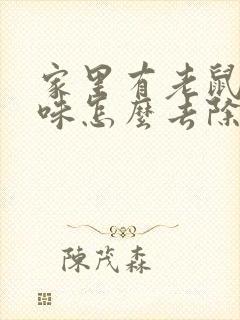 家里有老鼠
味怎麼去除
陳茂森